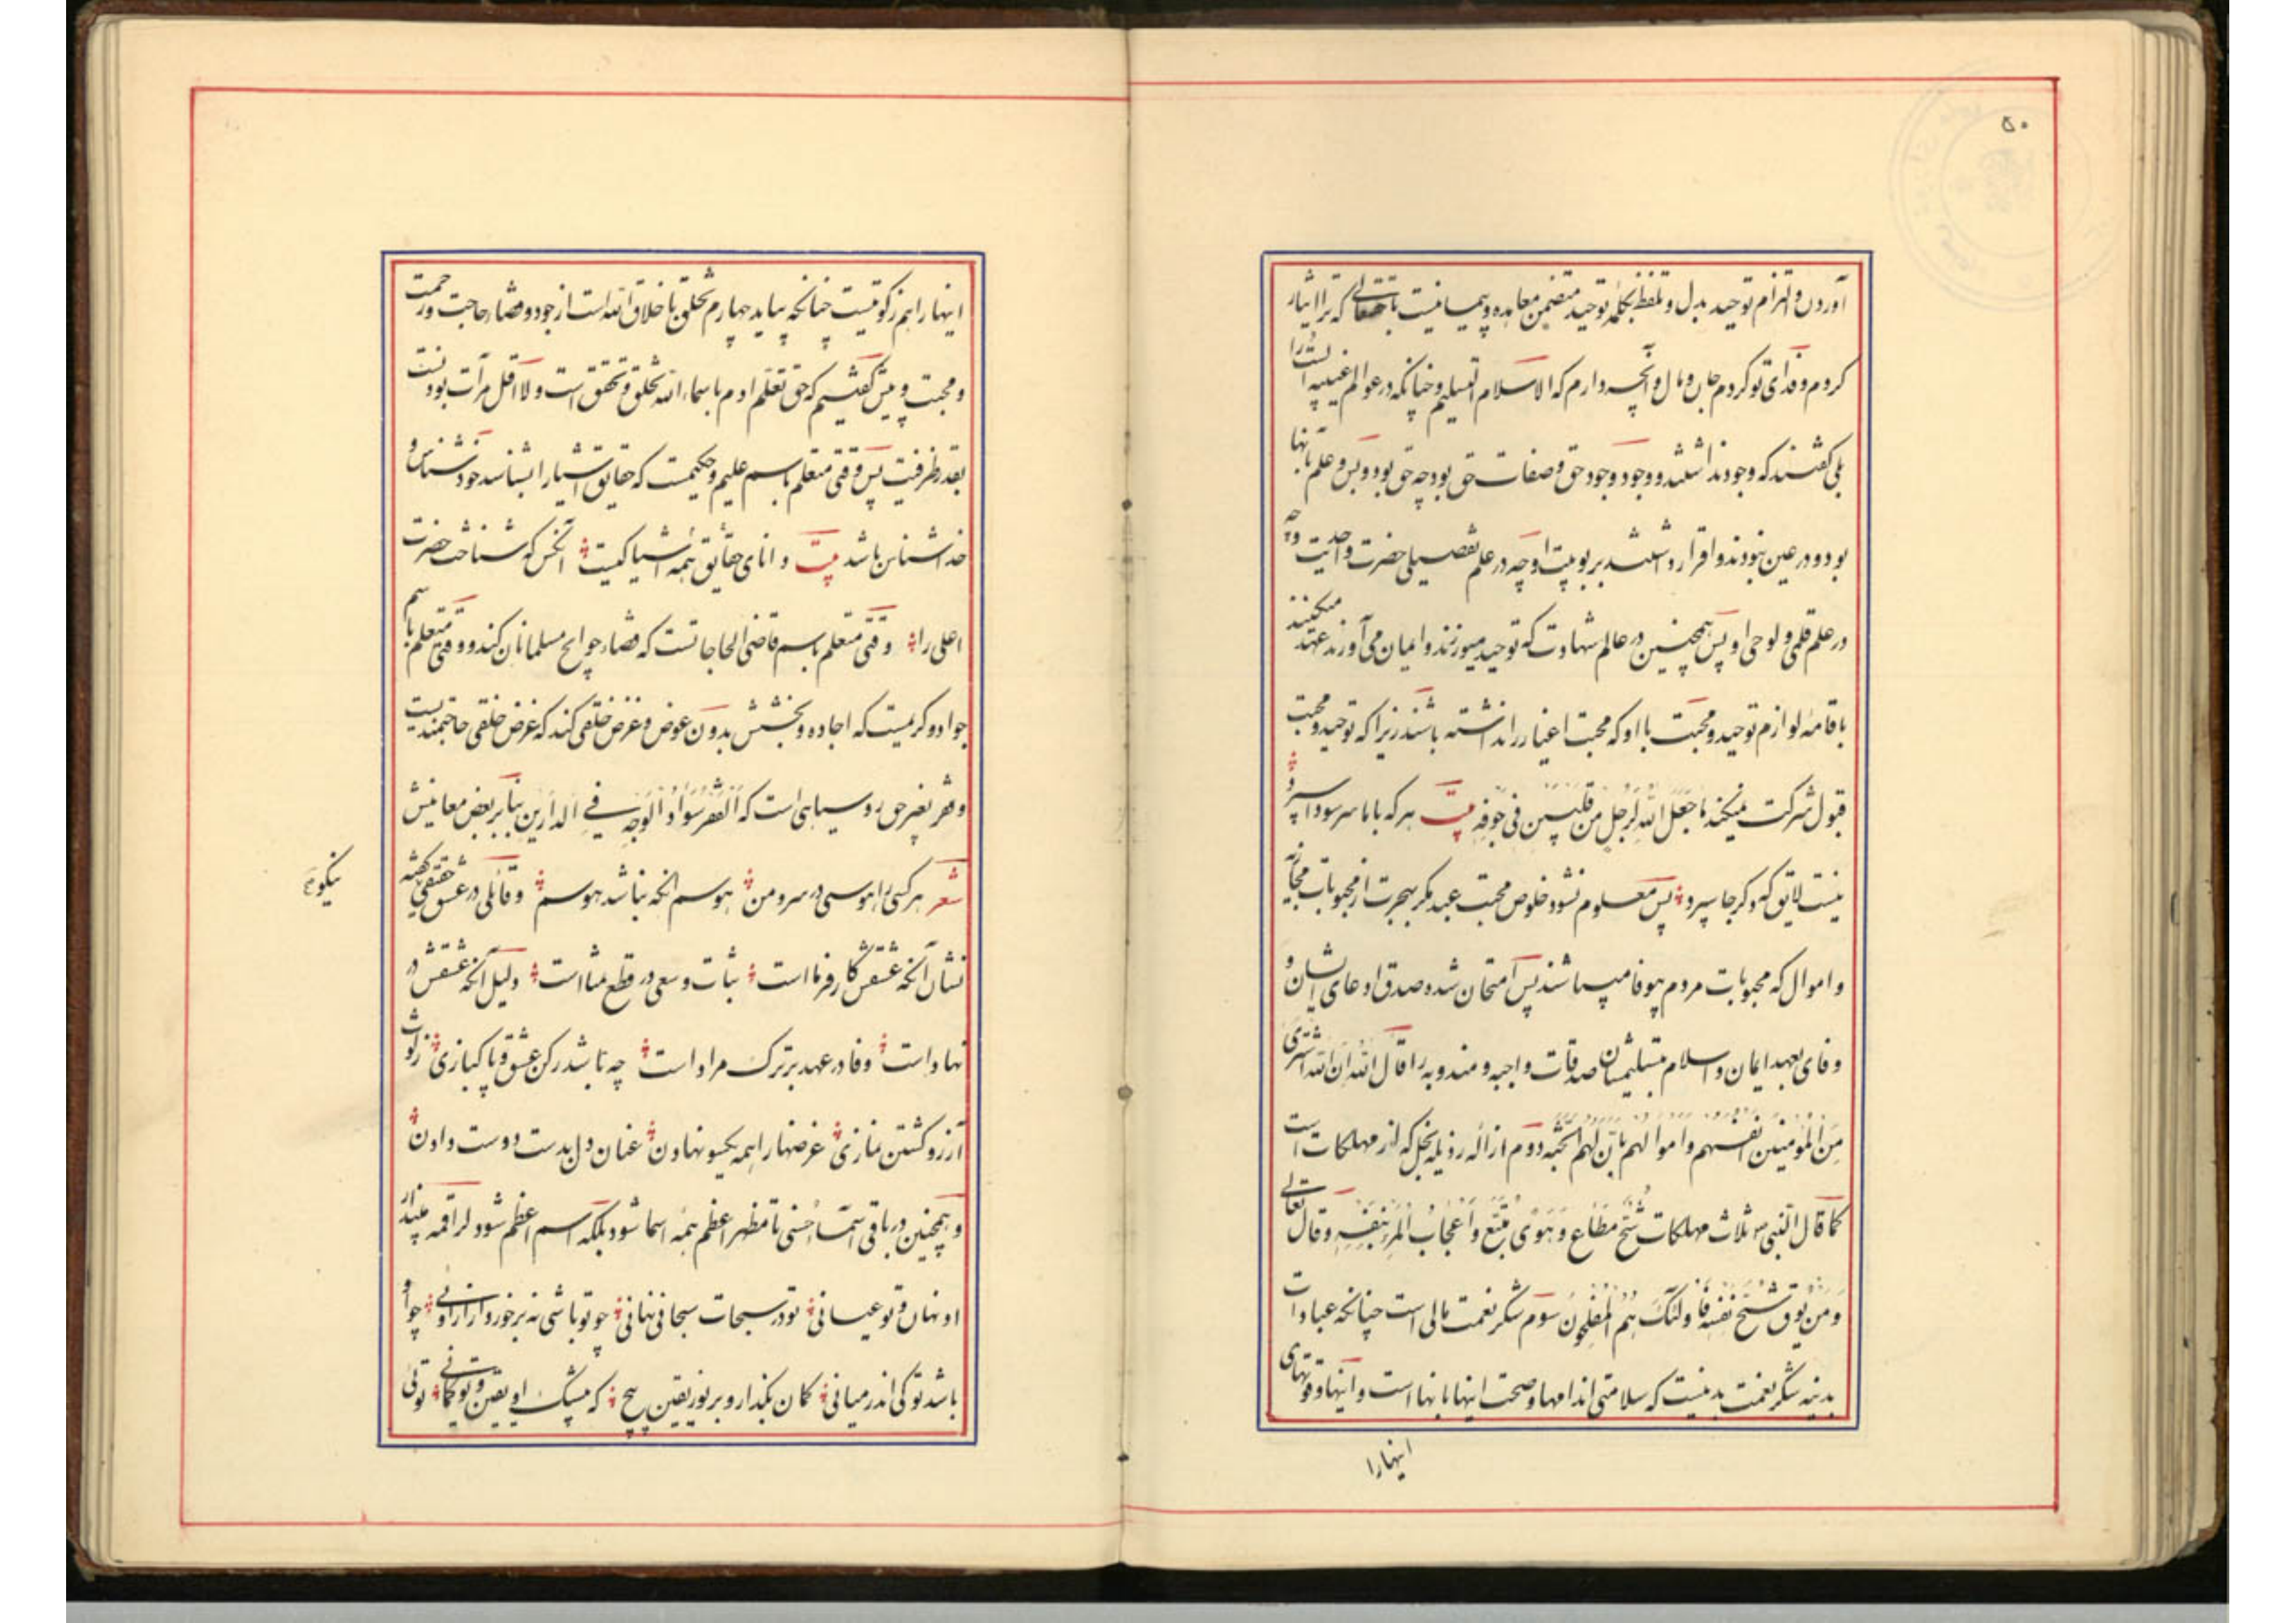 ۵۰
آوردن و التزام توحید بدل و تلفظ بکلمه توحید متضمن معاهده و پیمانیست با حقتعالی که ترا ایثار
کردم و فدای تو کردم جان و مال و آنچه دارم که الاسلام التسلیم و چنانکه در عوالم غیبیه الست را
بلی گفتند که وجود نداشتند و وجود وجود حق و صفات حق بود چه حق بود و بس و علم بآنها
بود و در عین نبودند و اقرار داشتند بربوبیت او چه در علم تفصیلی حضرت واحدیت و چه
در علم قلمی و لوحی او پس همچنین در عالم شهادت که توحید میورزند و ایمان می آورند عهد میکنند
باقامه لوازم توحید و محبت با او که محبت اغیار را نداشته باشند زیرا که توحید و محبت
قبول شرکت نمیکند ما جعل الله لرجل من قلبین فی جوفه بیت هر که با ما سر سودا سپرد
نیست لایق که دگر جا سپرد پس معلوم نشود خلوص محبت عبد مگر بهجرت از محبوبات مجازیه
و اموال که محبوبات مردم بیوفا میباشند پس امتحان شده صدق ادعای ایشان و
وفای بعهد ایمان و اسلام بتسلیمشان صدقات واجبه و مندوبه را قال الله ان الله اشتری
من المؤمنین انفسهم و اموالهم بان لهم الجنه دوم ازاله رذیله بخل که از مهلکات است
کما قال النبی ص ثلاث مهلکات شح مطاع و هوی متبع و اعجاب المرء بنفسه و قال تعالی
و من یوق شح نفسه فاولئک هم المفلحون سوم شکر نعمت مالی است چنانکه عبادات
بدنیه شکر نعمت بدنیست که سلامتی اندامها و صحت اینها بانها است و اینها و قوتهای
اینهارا
اینها را هم زکوتیست چنانکه بیاید چهارم تخلق باخلاق الله است از جود و قضاء حاجت و رحمت
و محبت و پیش گفتیم که حق تعلم ادم باسماء الله تخلق و تحقق است و لا اقل مرآت بودنست
بقدر ظرفیت پس وقتی متعلم باسم علیم و حکیمست که حقایق اشیا را بشناسد خود شناس و
خداشناس باشد بیت دانای حقایق همه اشیا کیست آنکس که شناخت حضرت
اعلی را وقتی متعلم باسم قاضی الحاجاتست که قضاء حوایج مسلمانان کند و وقتی متعلم باسم
جواد و کریمست که اجاده و بخشش بدون عوض و غرض خلقی کند که غرض خلقی حاجتمندیست
و فقر بغیر حق رو سیاهی است که الفقر سواد الوجه فی الدارین بنا بر بعض معانیش
شعر هر کسی را هوسی در سر و من هوسم انکه نباشد هوسم و قائلی در عشق حقیقی گفته
نیکو
نشان آنکه عشقش کارفرما است ثبات و سعی در قطع منا است دلیل آنکه عشقش در
نهاد است وفا در عهد بر ترک مراد است چه باشد رکن عشق و پاکبازی ز لوث
آرزو گشتن نمازی غرضها را همه یکسو نهادن عنان دل بدست دوست دادن
و همچنین در باقی اسماء حسنی تا مظهر اعظم همه اسما شود بلکه اسم اعظم شود لراقمه مپندار
او نهان و تو عیانی تو در سبحات سبحانی نهانی چو تو باشی نه برخوردار از اوئی چو او
باشد تو کی اندر میانی گمان بگذار و بر نور یقین پیچ که بیشک او یقین و تو گمانی توئی